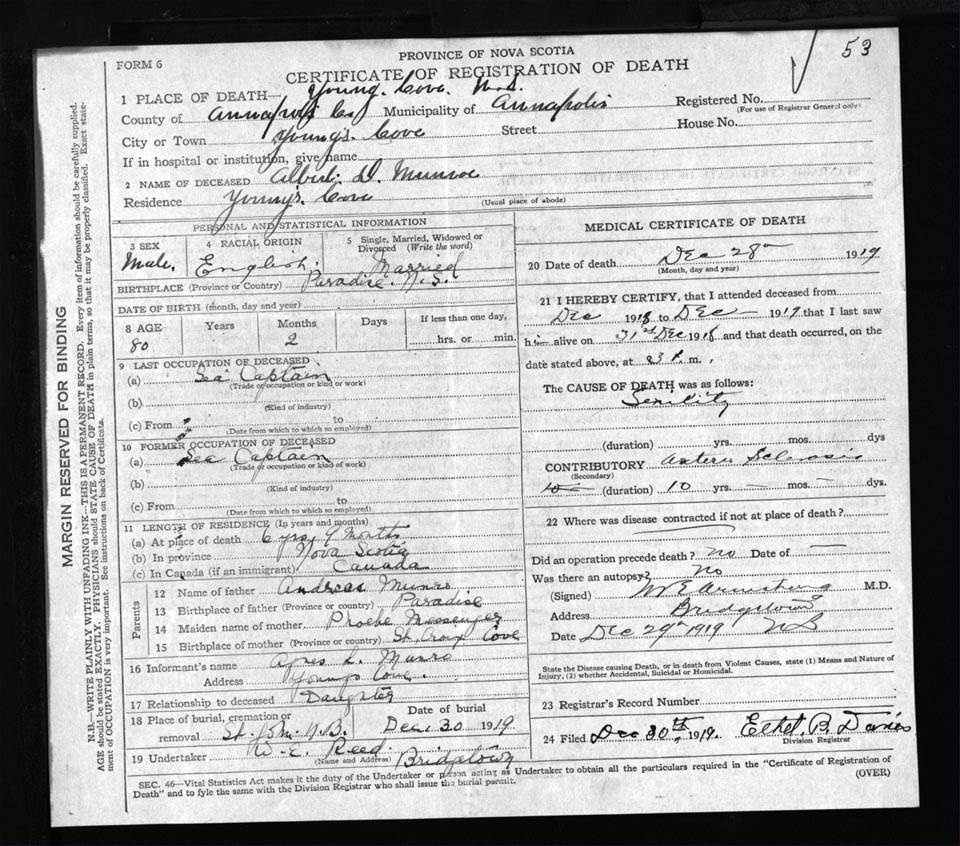 53
PROVINCE OF NOVA SCOTIA
FORM 6
CERTIFICATE OF REGISTRATION OF DEATH
1 PLACE OF DEATH— Young. Cove. N.S.
County of Annapolis Co Municipality of Annapolis Registered No.
(For use of Registrar General only)
City or Town Young's Cove Street House No.
If in hospital or institution, give name
2 NAME OF DECEASED Albert. D. Munroe
Residence Young's. Cove (Usual place of abode)
PERSONAL AND STATISTICAL INFORMATION
3 SEX 4 RACIAL ORIGIN 5 Single, Married, Widowed or Divorced (Write the word)
Male. English. Married
BIRTHPLACE (Province or Country) Paradise. N.S.
DATE OF BIRTH (month, day and year)
8 AGE Years Months Days If less than one day,
80 2 hrs. or min.
9 LAST OCCUPATION OF DECEASED
(a) Sea Captain
(Trade or occupation or kind or work)
(b)
(Kind of industry)
(c) From to
(Date from which to which so employed)
10 FORMER OCCUPATION OF DECEASED
(a) Sea Captain
(Trade or occupation or kind of work)
(b)
(Kind of industry)
(c) From to
(Date from which to which so employed)
11 LENGTH OF RESIDENCE (In years and months)
(a) At place of death 6 yrs. 9 months
(b) In province Nova Scotia
(c) In Canada (if an immigrant) Canada
Parents
12 Name of father Andreas Munro
13 Birthplace of father (Province or country) Paradise
14 Maiden name of mother Phoebe Messenger
15 Birthplace of mother (Province or country) St. Croix Cove
16 Informant's name Agnes L. Munro
Address Youngs Cove.
17 Relationship to deceased Daughter
18 Place of burial, cremation or removal St. John. N.B. Date of burial Dec. 30 1919
19 Undertaker W. E. Reed Bridgetown
(Name and Address)
MEDICAL CERTIFICATE OF DEATH
20 Date of death Dec 28th 1919
(Month, day and year)
21 I HEREBY CERTIFY, that I attended deceased from
Dec 1918 to Dec — 1919 that I last saw
h alive on 31st Dec 1918 and that death occurred, on the
date stated above, at P. m.
The CAUSE OF DEATH was as follows:
Senility
(duration) yrs. mos. dys
CONTRIBUTORY Arterio Sclerosis
(Secondary)
10 (duration) 10 yrs. — mos. — dys.
22 Where was disease contracted if not at place of death?
Did an operation precede death? no Date of —
Was there an autopsy? No
(Signed) W E Armstrong M.D.
Address Bridgetown
Date Dec 29th 1919 N S
State the Disease causing Death, or in death from Violent Causes, state (1) Means and Nature of
Injury, (2) whether Accidental, Suicidal or Homicidal.
23 Registrar's Record Number
24 Filed Dec 30th. 1919. Ethel. B. Davies
Division Registrar
SEC. 46—Vital Statistics Act makes it the duty of the Undertaker or person acting as Undertaker to obtain all the particulars required in the "Certificate of Registration of
Death" and to fyle the same with the Division Registrar who shall issue the burial permit.
(OVER)
MARGIN RESERVED FOR BINDING
N.B.—WRITE PLAINLY WITH UNFADING INK—THIS IS A PERMANENT RECORD. Every item of information should be carefully supplied.
AGE should be stated EXACTLY. PHYSICIANS should STATE CAUSE OF DEATH in plain terms, so that it may be properly classified. Exact statement of OCCUPATION is very important. See instructions on back of Certificate.